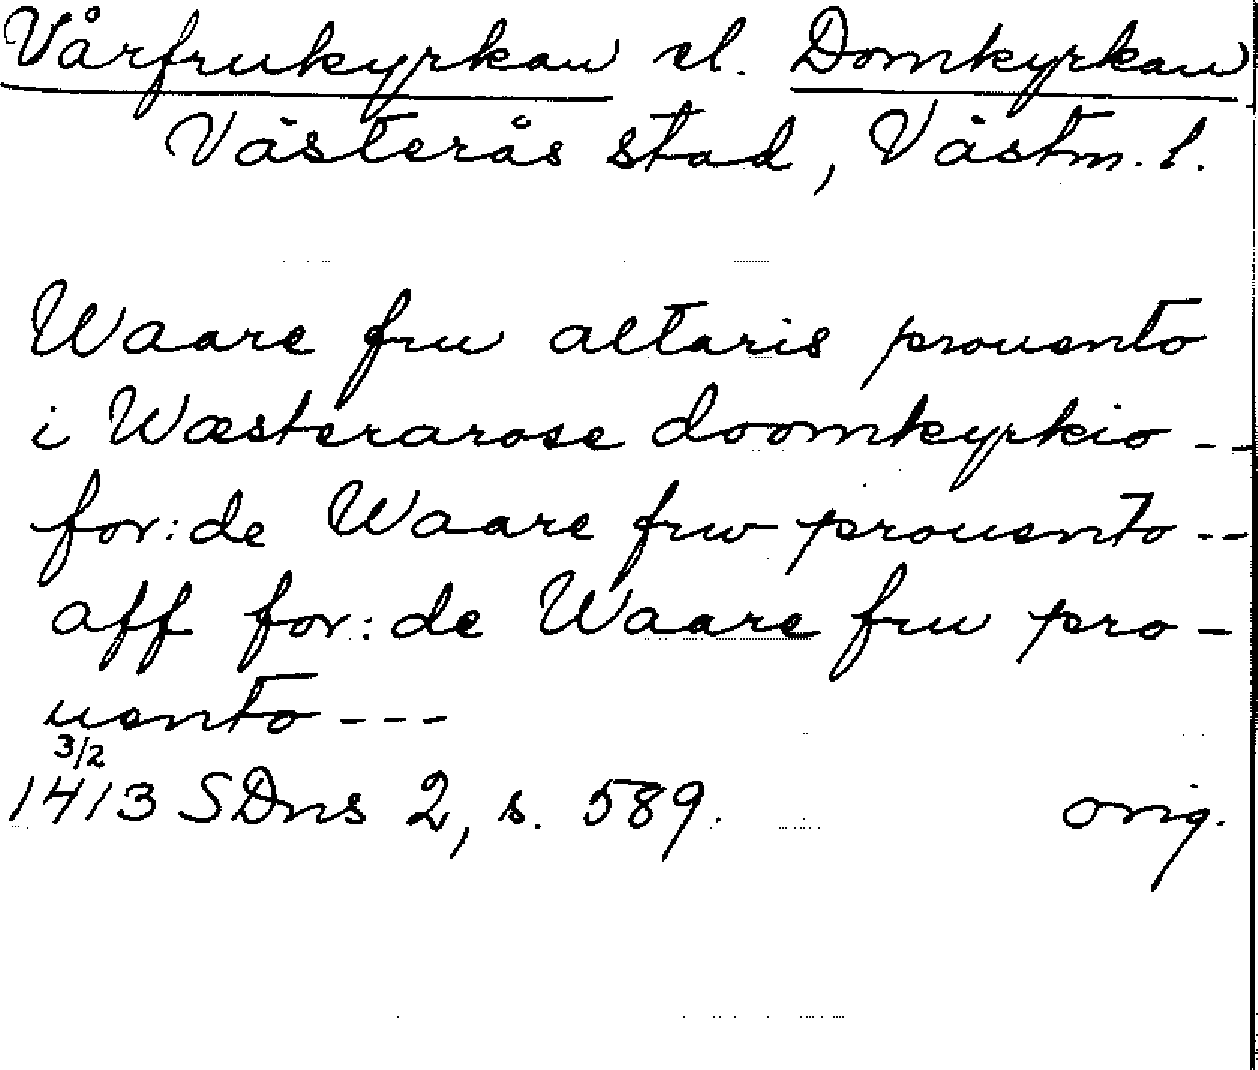 Vårfrukyrkan el. Domkyrkan
Västerås stad, Västm. l.
Waare fru altaris prouento
i Wæsterarose doomkyrkio --
for:de Waare frw prouento --
aff for:de Waare fru pro-
uento ---
3/2
1413 SDns 2, s. 589. orig.